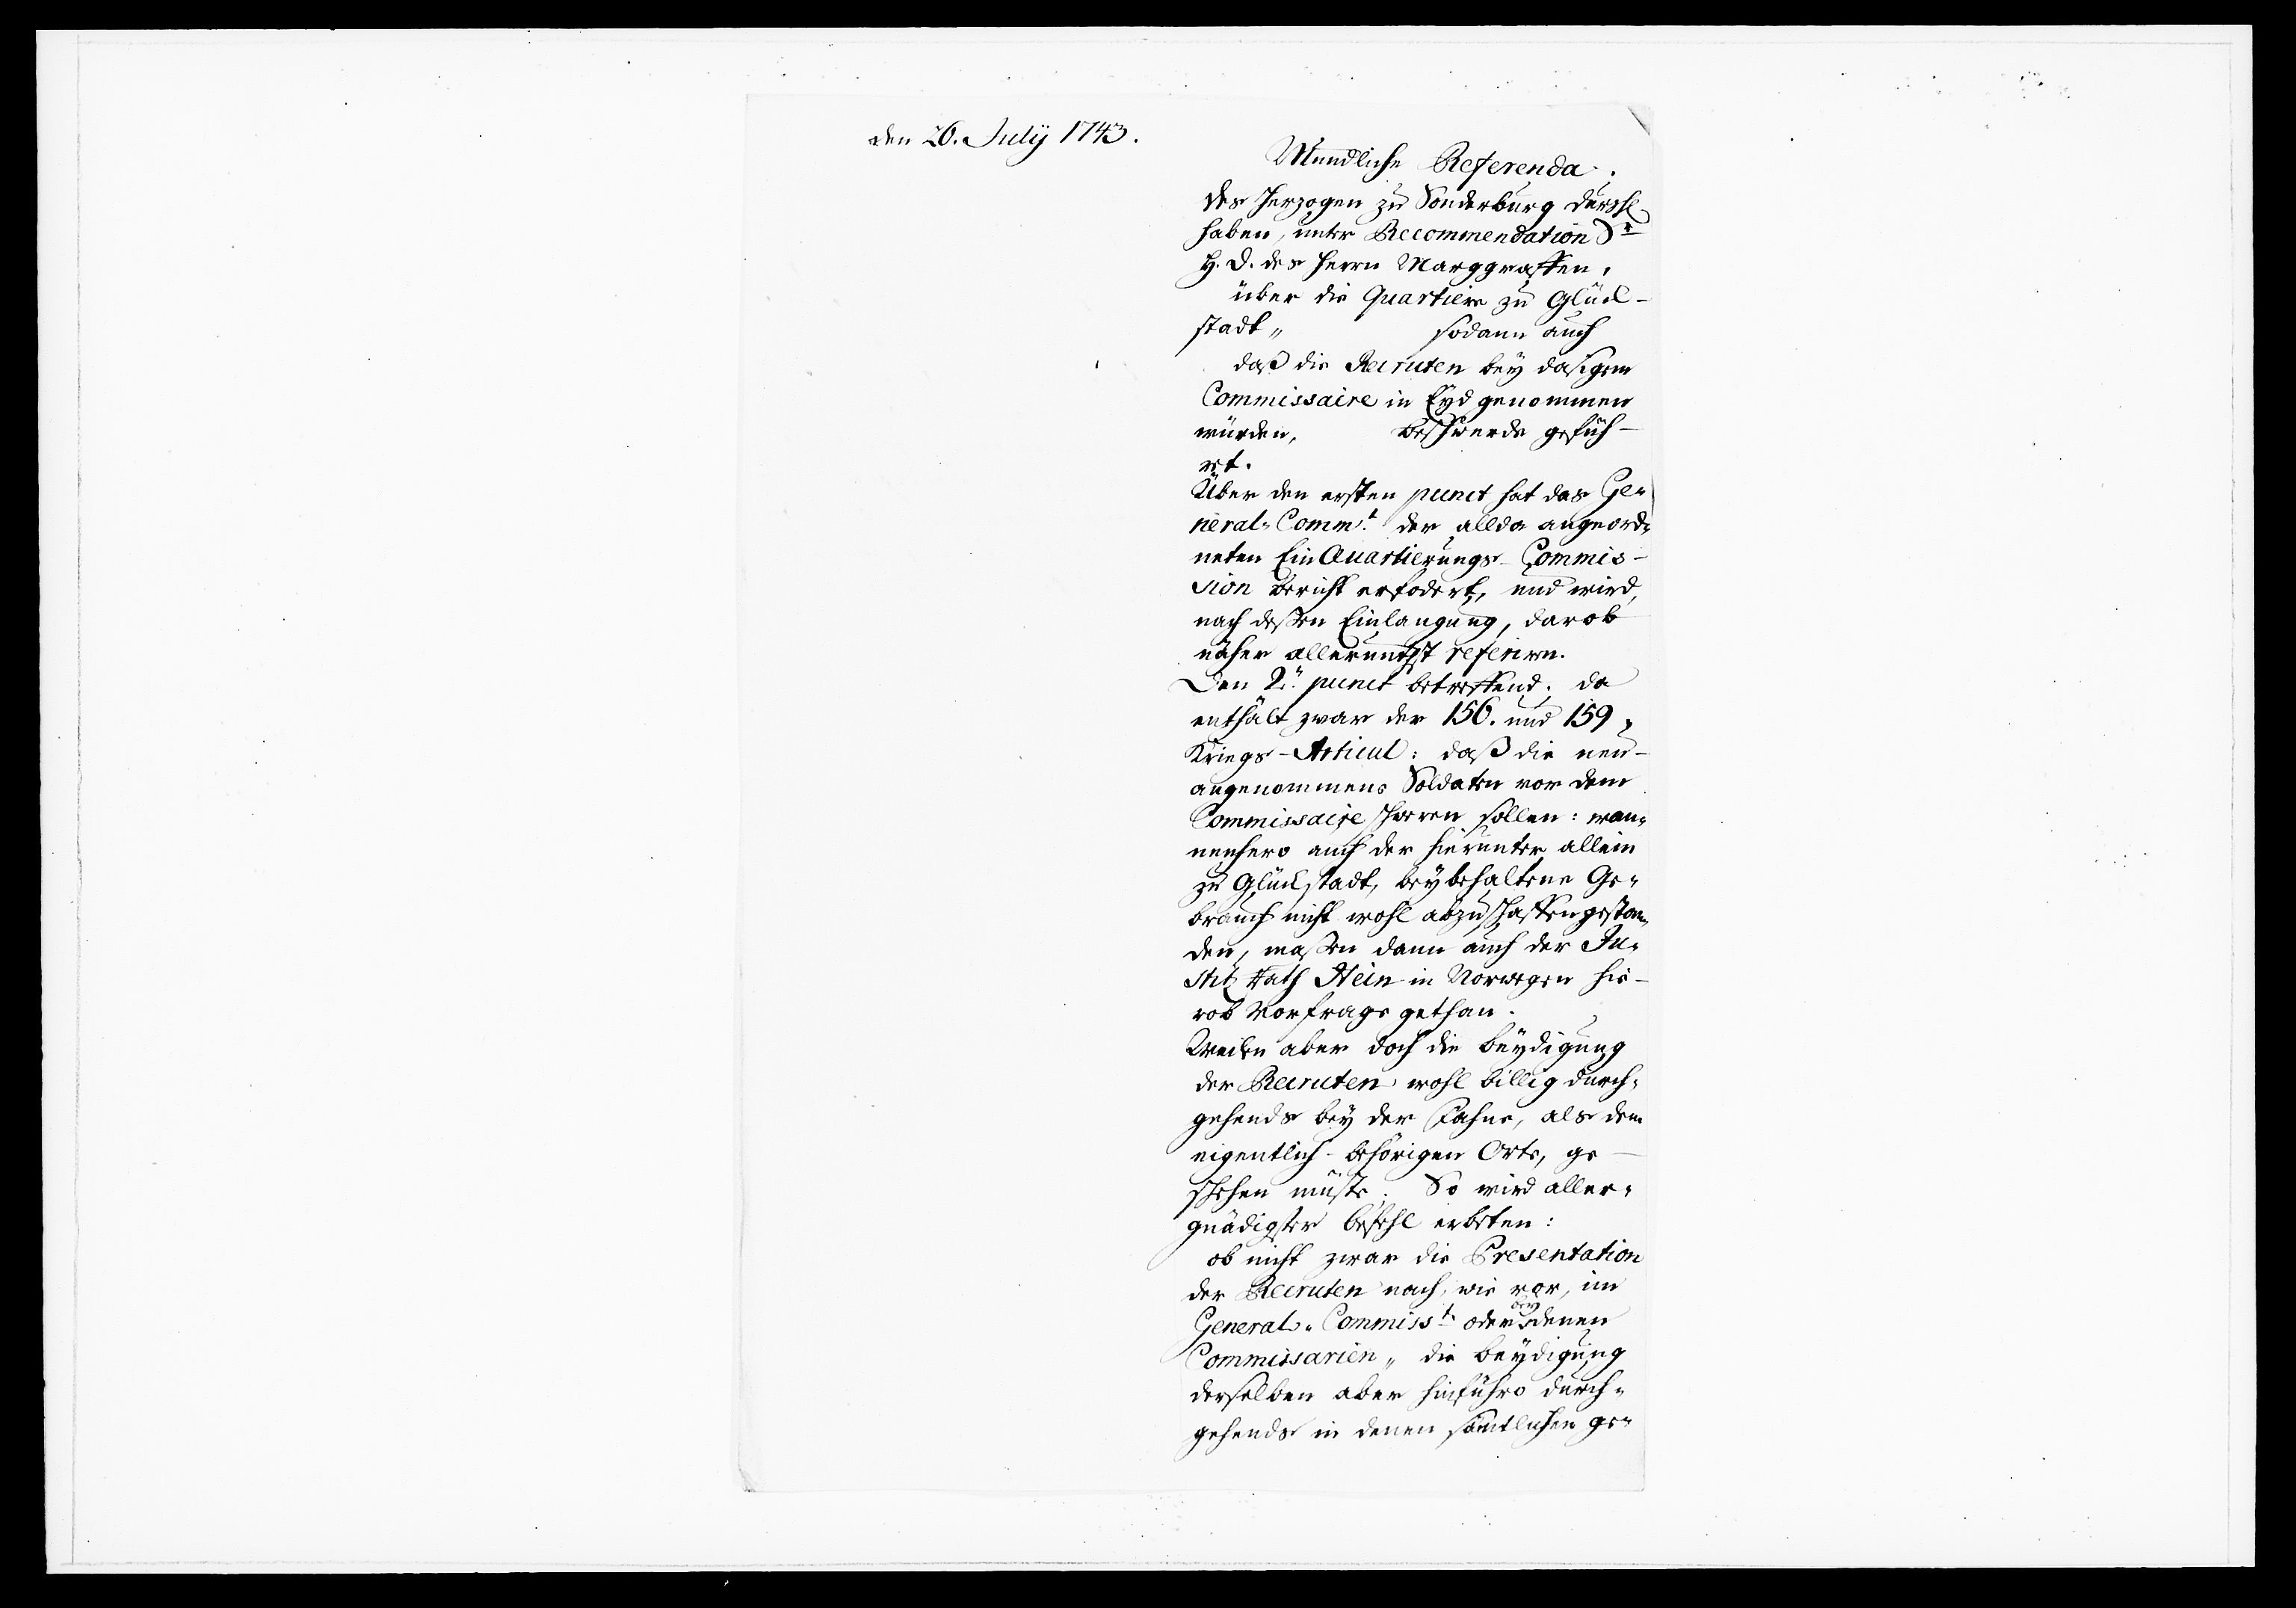 den 26. Julij 1743.
Mundliche Referenda.
Des Herzogen zu Sonderburg Durchl
haben, unter Recommendation Sr
H. D. des Herrn Marggraffen,
über die Quartiere zu Glück-
stadt„ sodann auch
daß die Recruten bey dasigem
Commissaire in Eyd genommen
würden, beschwerde gefüh-
ret.
Über den ersten punct hat das Ge„
neral„Commt der allda angeord„
neten EinQuartierungs-Commis-
sion bericht erfodert, und wird,
nach deßen Einlangung, darob
näher allerunthst referiren.
Den 2.n punct betreffend; da
enthält zwar der 156. und 159„
Kriegs-Articul: daß die neu-
angenommene Soldaten vor dem
Commissaire schweren sollen: wan„
nenhero auch der hierunter, allein
zu Glückstadt, beybehaltene Ge„
brauch nicht wohl abzuschaffen gestan„
den, maßen dann auch der Ju„
stitz Rath Stein in Norwegen hie-
rob Vorfrage gethan.
Weilen aber doch die beydigung
der Recruten wohl billig durch„
gehends bey der Fahne, als dem
eigentlich-behörigen Orte, ge-
schehen müste; So wird aller„
gnädigster befehl erbeten:
ob nicht zwar die Presentation
der Recruten nach, wie vor, im
General„Commisst oder bey denen
Commissarien„ die beydigung
derselben aber hinführo durch„
gehends in denen sämtlichen ge„